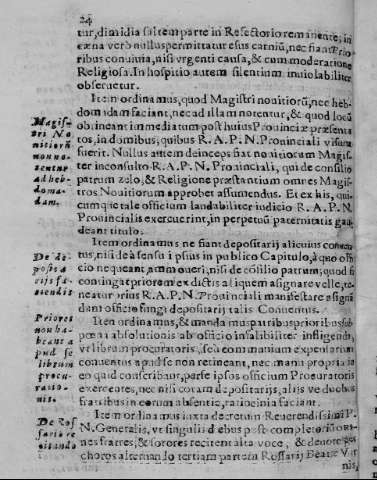 24
tur, dimidia saltem parte in Refectorio remanente; in
cæna verò nullus permittatur esus carniũ, nec fiant Prio-
ribus conuiuia, nisi vrgenti causa, & cum moderatione
Religiosa. In hospitio autem silentium inuiolabiliter
obseruetur.
Item ordinamus, quod Magistri nouitiorũ, nec heb-
domadam faciant, nec ad illam notentur, & quod locũ
obtineant immediatum post huius Prouinciæ præsenta
tos, in domibus, quibus R. A. P. N. Prouinciali visum
fuerit. Nullus autem deinceps fiat nouitiorum Magis-
ter inconsulto R. A. P. N. Prouinciali, qui de consilio
patrum zelo, & Religione præstantium omnes Magis-
tros Nouitiorum approbet assumendus. Et ex his, qui-
cumque tale officium laudabiliter iudicio R. A. P. N.
Prouincialis exercuerint, in perpetuũ paternitatis gau
deant titulo.
Item ordinamus ne fiant depositarij alicuius conuen
tus, nisi de assensu ipsius in publico Capitulo, à quo offi
cio nequeant ammoueri, nisi de cõsilio patrum; quod si
contingat priorem ex dictis aliquem assignare velle, te-
neatur prius R. A. P. N. Prouinciali manifestare assigna
dam officio fungi depositarij talis Conuentus.
Item ordinamus, & mandamus patribus prioribus sub
pœna absolutionis ab officio infalibiliter infligenda,
vt librum procuratoris, seu communium expensarum
conuentus apud se non retineant, nec manu propria in
eo quid conscribant, per se ipsos officium Procuratoris
exercentes, nec nisi coram depositarijs, alijs ve duobus
fratribus in eorum absentic, ratiocinia faciant.
Item ordinamus iuxta decretum Reuerendissimi P.
N. Generalis, vt singulis diebus post completorium om-
nes fratres, & sorores recitent alta voce, & deuote per
choros alternando tertiam partem Rossarij Beatæ Vir
nis,
Magis-
tri No
uitiorũ
non no-
tentur
ad heb-
doma-
dam.
De de-
positæ
rijs fa-
ciendis
Priores
non ha-
beant a
pud se
librum
procu-
ratio-
nis.
De Ros
sario re
citando